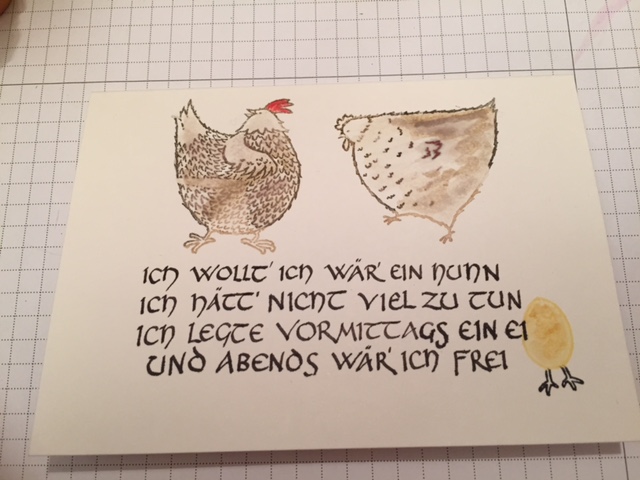 ICH WOLLT' ICH WÄR' EIN HUHN
ICH HÄTT' NICHT VIEL ZU TUN
ICH LEGTE VORMITTAGS EIN EI
UND ABENDS WÄR' ICH FREI